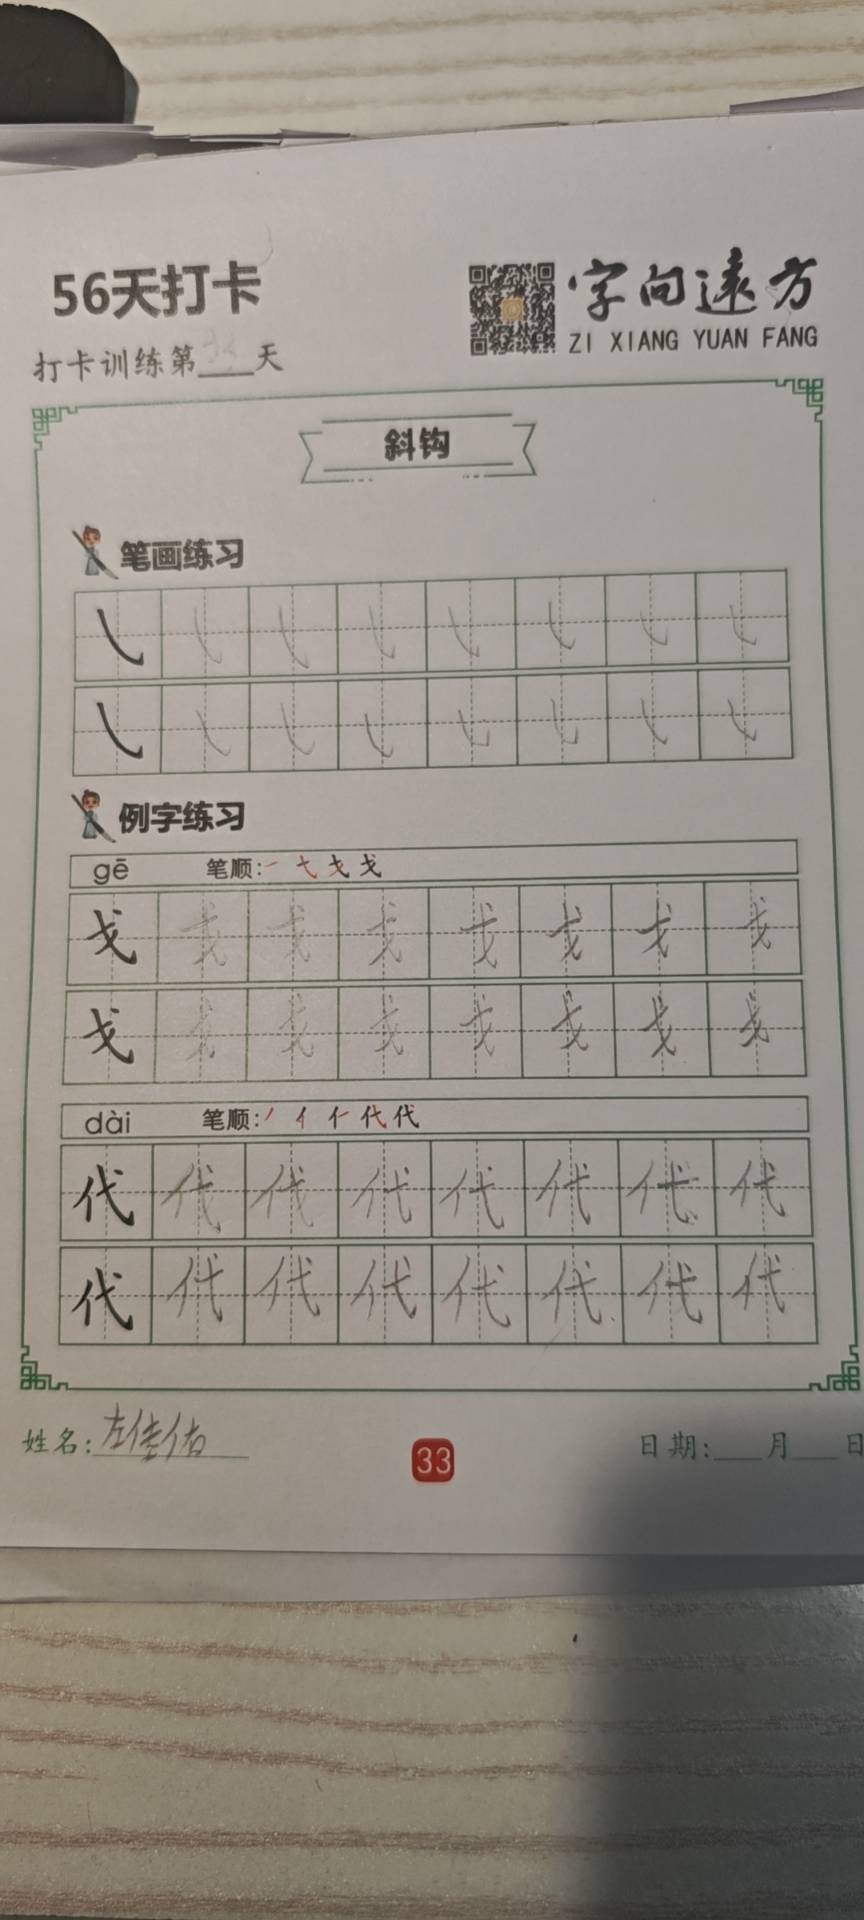 56天打卡
字向遠方
ZI XIANG YUAN FANG
打卡训练第33天
斜钩
笔画练习
㇂ ㇂ ㇂ ㇂ ㇂ ㇂ ㇂ ㇂
㇂ ㇂ ㇂ ㇂ ㇂ ㇂ ㇂ ㇂
例字练习
gē 笔顺: 一 弋 戈 戈
戈 戈 戈 戈 戈 戈 戈 戈
戈 戈 戈 戈 戈 戈 戈 戈
dài 笔顺: 丿 亻 代 代
代 代 代 代 代 代 代 代
代 代 代 代 代 代 代 代
姓名: 左佳佑
33
日期: 月 日